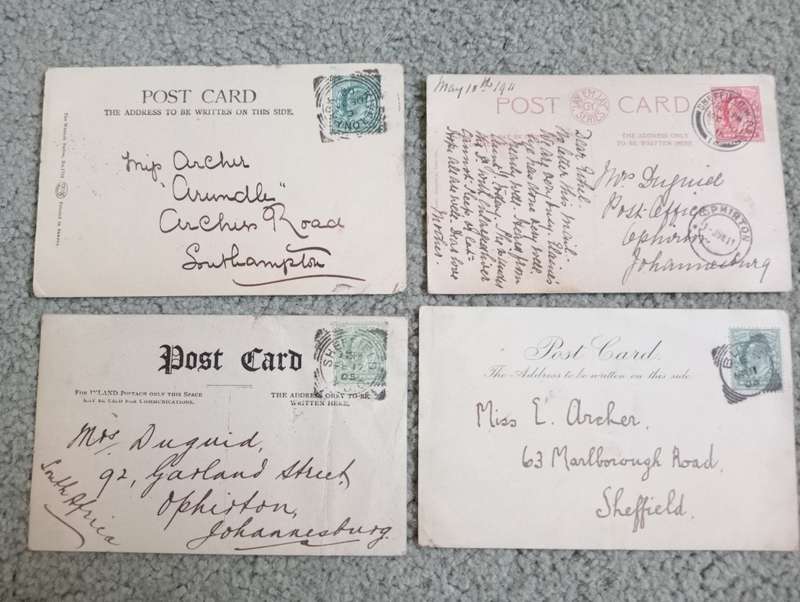 POST CARD
THE ADDRESS TO BE WRITTEN ON THIS SIDE.
Miss Archer
"Arundle"
Archers Road
Southampton
May 10th 1911
POST CARD
THE ADDRESS ONLY
TO BE WRITTEN HERE.
Dear Ethel.
No letter this mail.
very busy.
has done very well
Heard from
Friday.
all are well. Dear love
Mother.
Mrs Duguid
Post Office
Ophirton
Johannesburg
OPHIRTON
Post Card
FOR INLAND POSTAGE ONLY THIS SPACE
MAY BE USED FOR COMMUNICATIONS.
THE ADDRESS ONLY TO BE
WRITTEN HERE.
Mrs Duguid,
92, Garland Street,
Ophirton,
Johannesburg.
South Africa
Post Card.
The Address to be written on this side.
Miss E. Archer.
63 Marlborough Road,
Sheffield.